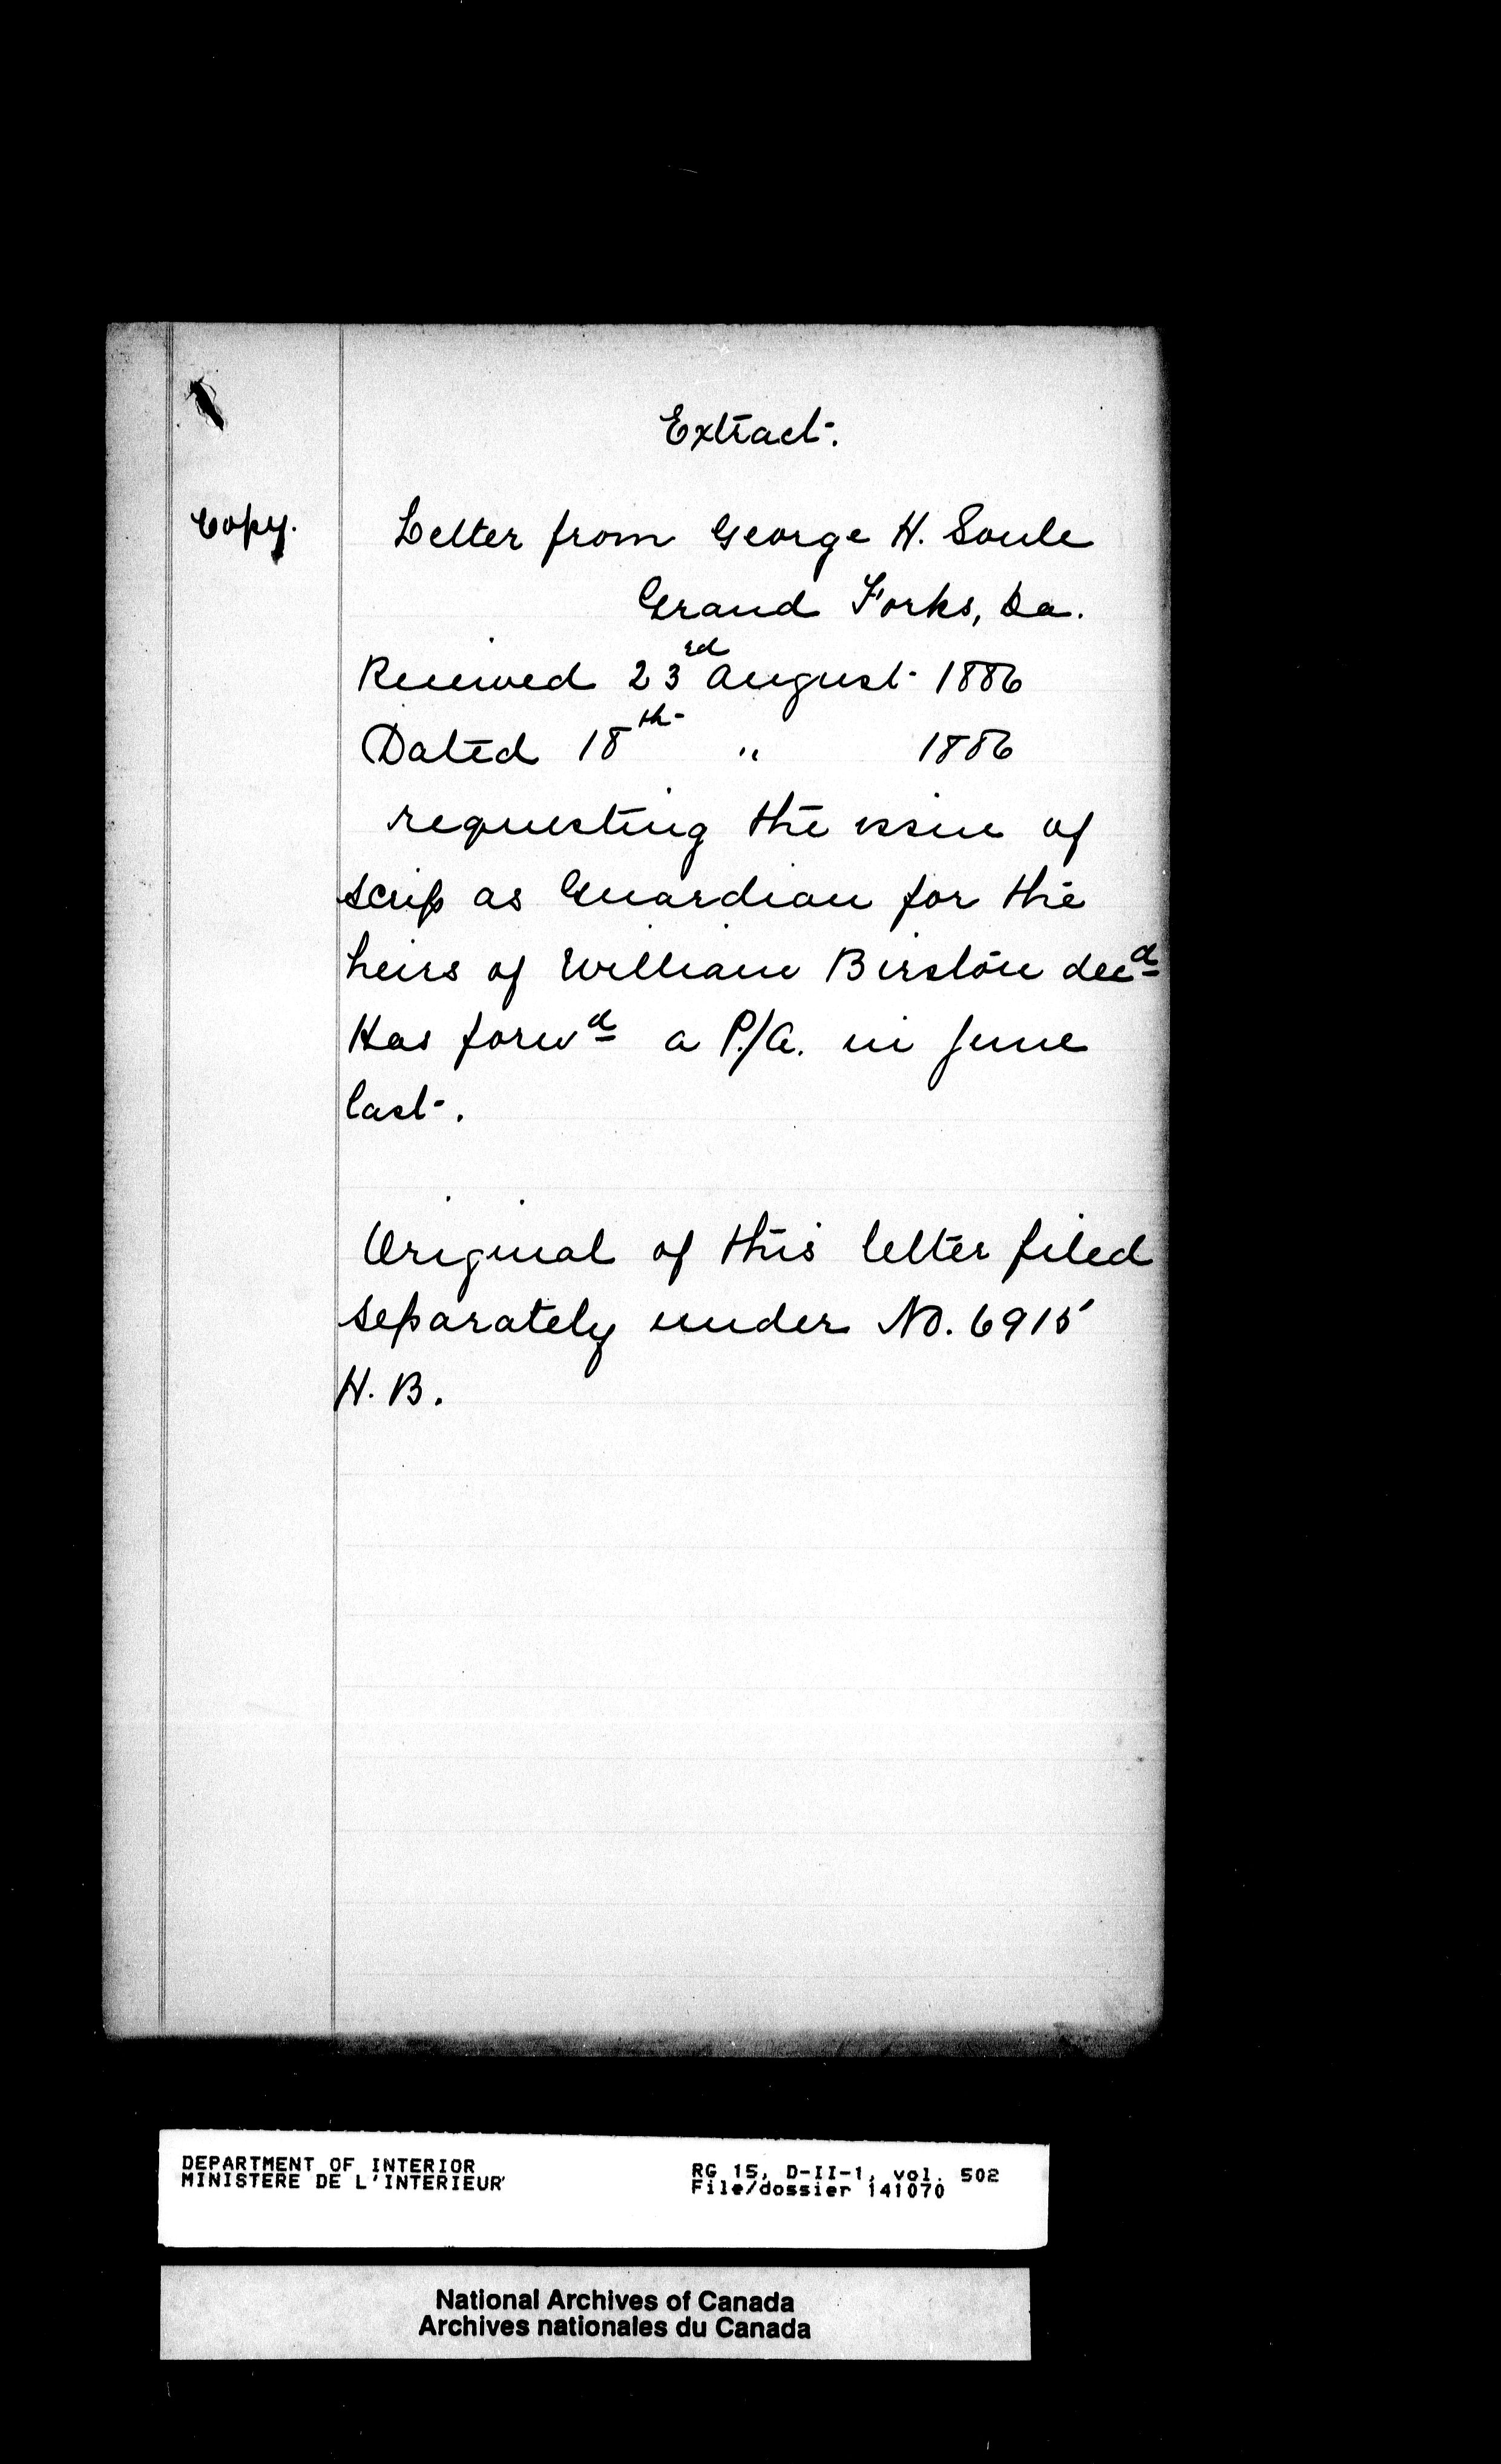 Extract.
Copy.
Letter from George H. Soule
Grand Forks, Da.
Received 23rd August 1886
Dated 18th " 1886
requesting the issue of
scrip as Guardian for the
heirs of William Birston decd
Has forwd a P./A. in June
last.
Original of this letter filed
separately under No. 6915
H. B.
DEPARTMENT OF INTERIOR
MINISTERE DE L'INTERIEUR
RG 15, D-II-1, vol. 502
File/dossier 141070
National Archives of Canada
Archives nationales du Canada